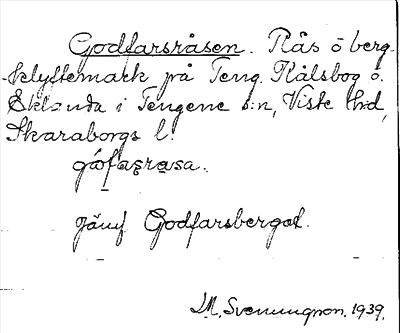 Godfarsråsen. Rås o berg-
-klyftemark på Teng. Kålsbog o.
Eklanda i Tengene s:n, Viste h:d,
Skaraborgs l.
gófaṣrasa.
jämf Godfarsberget.
M. Svenungson. 1939.